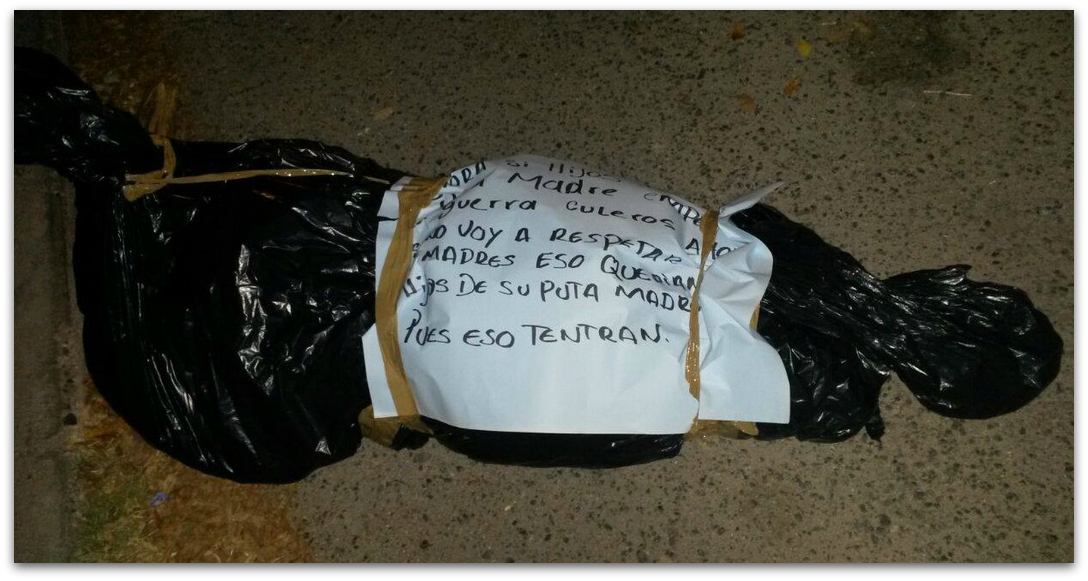 Si Hijos
Madre
guerra culeros
NO VOY A RESPETAR
MADRES ESO QUERIAN
Hijos DE SU PUTA MADRE
PUES ESO TENTRAN.